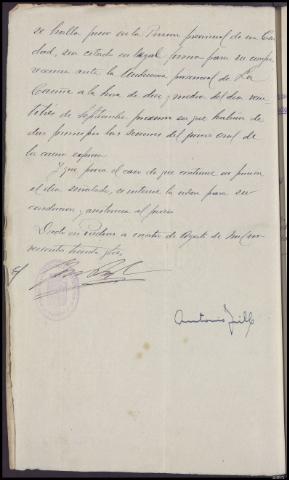 se halla preso en la Prision provincial de esa Ciu
dad, sea citado en legal forma para su compa
recencia ante la Audiencia provincial de La
Coruña a la hora de diez y media del dia vein
titres de Septiembre proximo en que habran de
dar principio las sesiones del juicio oral de
la causa expresa
Y que para el caso de que continue en prision
el dia señalado, se interese la orden para su
conduccion y asistencia al juicio
Dado en a cuatro de Agosto de mil no
vecientos treinta y tres
Antonio